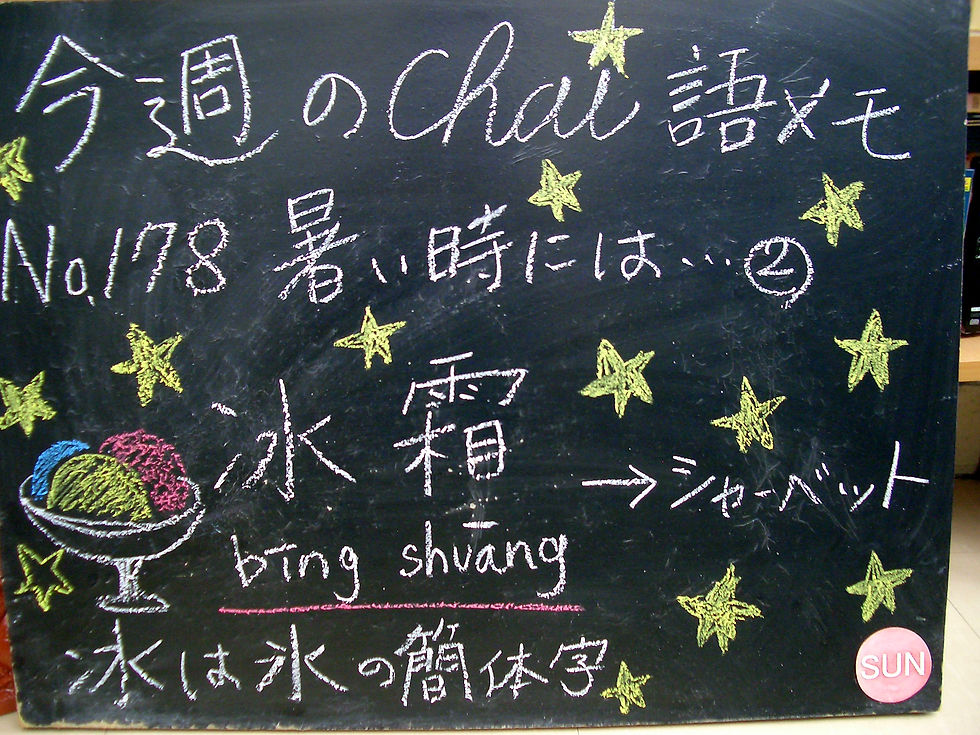 今週のChai語メモ
No.178 暑い時には…②
冰霜 → シャーベット
bīng shuāng
冰は氷の簡体字
SUN